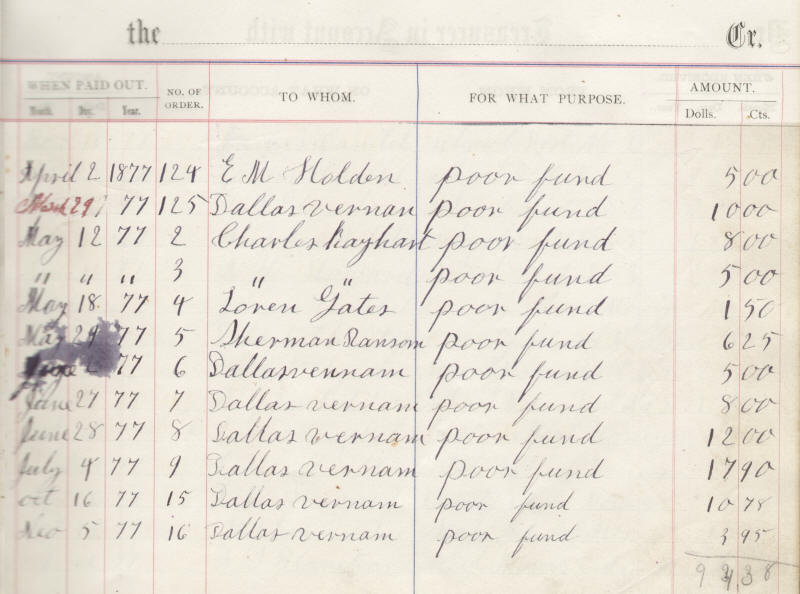 the Cr.
WHEN PAID OUT. NO. OF ORDER. TO WHOM. FOR WHAT PURPOSE. AMOUNT.
Month. Day. Year. Dolls. Cts.
April 2 1877 124 E M Holden poor fund 5 00
March 29 77 125 Dallas vernan poor fund 10 00
May 12 77 2 Charles Rayhart poor fund 8 00
" " " 3 " " poor fund 5 00
May 18 77 4 Loren Gates poor fund 1 50
May 29 77 5 Sherman Ransom poor fund 6 25
77 6 Dallas vennam poor fund 5 00
June 27 77 7 Dallas vernam poor fund 8 00
June 28 77 8 Dallas vernam poor fund 12 00
July 4 77 9 Dallas vernam poor fund 17 90
oct 16 77 15 Dallas vernam poor fund 10 78
Nov 5 77 16 Dallas vernam poor fund 3 95